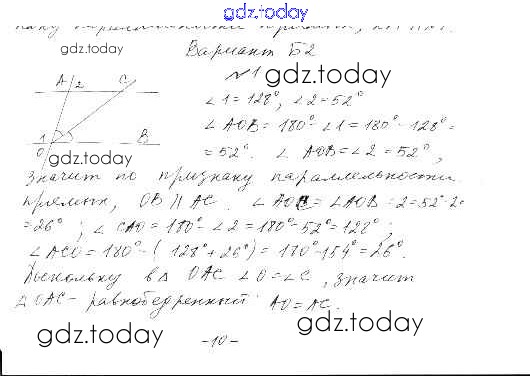 gdz.today
gdz.today
Вариант Б2
№1
gdz.today
A 2 C
1 B
O
gdz.today
∠1 = 128°; ∠2 = 52°
∠AOB = 180° - ∠1 = 180° - 128° =
= 52°. ∠AOB = ∠2 = 52°,
значит по признаку параллельности
прямых, OB || AC. ∠AOC = ∠AOB : 2 = 52° : 2 =
= 26°; ∠CAO = 180° - ∠2 = 180° - 52° = 128°;
∠ACO = 180° - (128° + 26°) = 180° - 154° = 26°.
Поскольку в Δ OAC ∠O = ∠C, значит
Δ OAC - равнобедренный AO = AC.
gdz.today
gdz.today
-10-